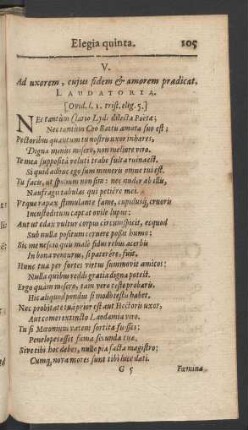 Elegia quinta. 105
V.
Ad uxorem, cujus fidem & amorem prædicat.
LAUDATORIA.
[Ovid. l. 1. trist. eleg. 5.]
NEc tantùm Clario Lyde dilecta Poëtæ;
Nec tantùm Coo Battis amata suo est;
Pectoribus quantum tu nostris uxor inhæres,
Digna minus misero, non meliore viro.
Te mea supposita veluti trabe fulta ruina est.
Si quid adhuc ego sum muneris omne tui est.
Tu facis, ut spolium non sim: nec nuder ab illis,
Naufragæ tabulas qui petiêre meæ.
Utque rapax stimulante fame, cupidusq; cruoris
Incustoditum captat ovile lupus:
Aut ut edax vultur corpus circumspicit, ecquod
Sub nulla positum cernere possit humo:
Sic mea nescio quis malè fidus rebus acerbis
In bona venturus, si paterere, fuit.
Hunc tua per fortes virtus summovit amicos:
Nulla quibus reddi gratia digna potest.
Ergo quàm misero, tam vero teste probaris:
Hic aliquod pondus si modò testis habet.
Nec probitate tuâ prior est aut Hectoris uxor,
Aut comes extincto Laodamia viro.
Tu si Mæonium vatem sortita fuisses:
Penelopes esset fama secunda tuæ.
Sive tibi hoc debes, nullo pia facta magistro;
Cumq; nova mores sunt tibi luce dati.
G 5
Fœmina